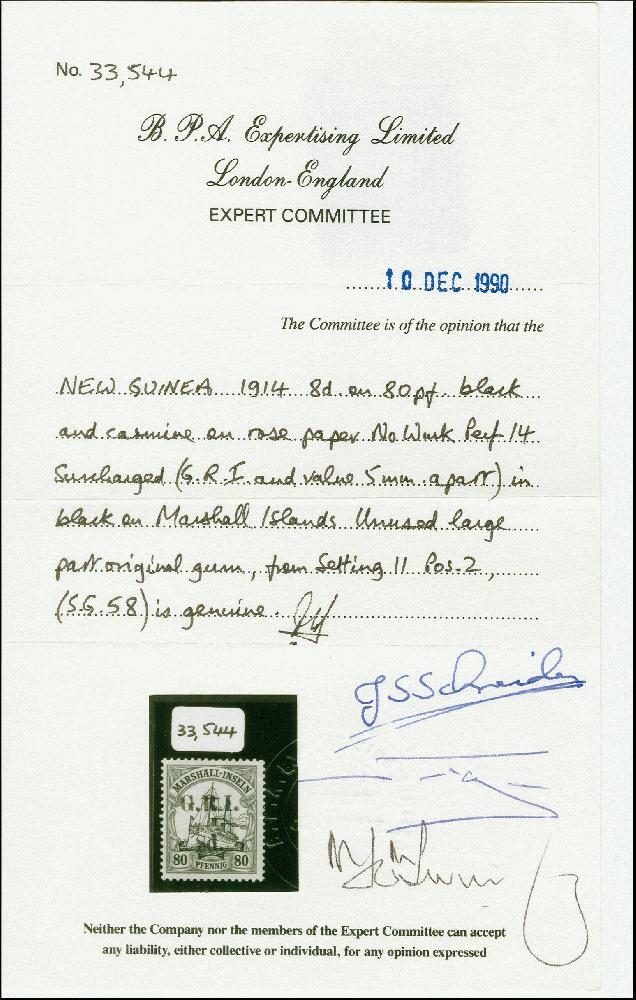 No. 33,544
B. P. A. Expertising Limited
London-England
EXPERT COMMITTEE
10 DEC 1990
The Committee is of the opinion that the
NEW GUINEA 1914 8d on 80pf. black
and carmine on rose paper No Wmk Perf 14
Surcharged (G.R.I. and value 5mm apart) in
black on Marshall Islands Unused large
part original gum, from Setting 11 Pos. 2,
(SG.58) is genuine.
33,544
MARSHALL-INSELN
G.R.I.
80 PFENNIG 80
Neither the Company nor the members of the Expert Committee can accept
any liability, either collective or individual, for any opinion expressed